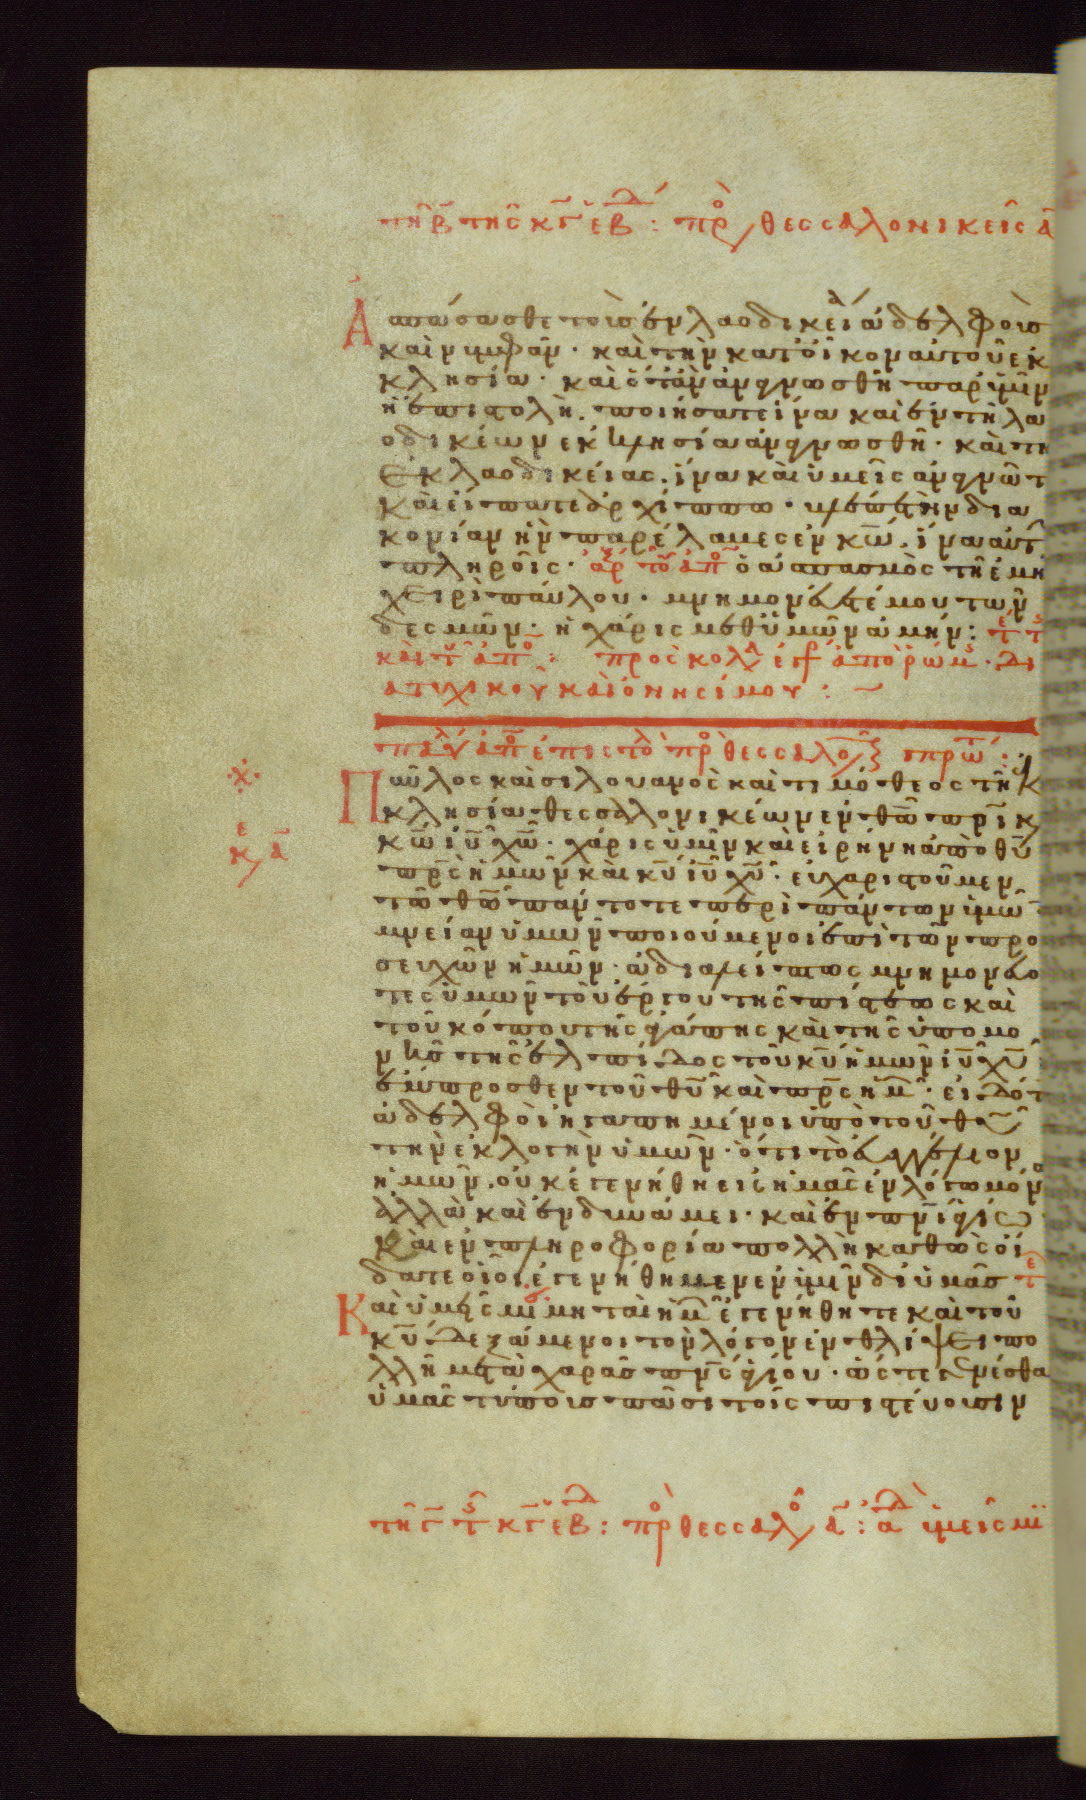 τῇ β τῆς κγ ἑβδ : πρὸ θεσσαλονικεῖς α
Ἀσπάσασθε τοὺσ ἐν λαοδικεία ἀδελφοὺσ
καὶ νυμφᾶν · καὶ τὴν κατ οἶκον αὐτοῦ ἐκ
κλησίαν · καὶ ὅταν ἀναγνωσθῆ παρ ὑμῖν
ἡ ἐπιστολὴ, ποιήσατε ἵνα καὶ ἐν τῆ λα
οδικέων ἐκκλησία ἀναγνωσθῆ · καὶ τὴν
ἐκ λαοδικείας. ἵνα καὶ ὑμεῖς ἀναγνῶτ
καὶ εἴπατε ἀρχίππω · βλέπε τὴν δια
κονίαν ἣν παρέλαβες ἐν κω. ἵνα αὐτ
πληροῖς · ὁ ἀσπασμὸς τῆ ἐμῆ
χειρὶ παύλου · μνημονεύετέ μου τῶν
δεσμῶν · ἡ χάρις μεθ ὑμῶν ἀμήν :
πρὸς κολ ἐγρ ἀπὸ ῥώμ · δι
α τυχικοῦ καὶ ὀνησίμου : ~
παύ ἀπο ἐπιστολ πρὸ θεσσαλο πρω :
Παῦλος καὶ σιλουανὸς καὶ τιμόθεος τῆ ἐκ
κλησία θεσσαλονικέων ἐν θω πρι κ
κω ιυ χω · χάρις ὑμῖν καὶ εἰρήνη ἀπὸ θυ
πρς ἡμῶν καὶ κυ ιυ χυ · εὐχαριστοῦμεν
τῶ θω πάντοτε περὶ πάντων ὑμῶ
μνείαν ὑμῶν ποιούμενοι ἐπὶ τῶν προ
σευχῶν ἡμῶν · ἀδιαλείπτως μνημονεύο
τες ὑμῶν τοῦ ἔργου τῆς πίστεως καὶ
τοῦ κόπου τῆς ἀγάπης καὶ τῆς ὑπομο
νῆσ τῆς ἐλπίδος τοῦ κυ ἡμῶν ιυ χυ
ἔμπροσθεν τοῦ θυ καὶ πρς ἡμ · εἰδότ
ἀδελφοὶ ἠγαπημένοι ὑπὸ τοῦ θυ
τὴν ἐκλογὴν ὑμῶν · ὅτι τὸ εὐαγγέλιον
ἡμῶν. οὐκ ἐγενήθη εἰς ὑμᾶς ἐν λόγω μόν
ἀλλὰ καὶ ἐν δυνάμει · καὶ ἐν πνι ἁγίω
καὶ ἐν πληροφορία πολλῆ καθὼς οἴ
δατε οἷοι ἐγενήθημεν ἐν ὑμῖν δι ὑμᾶσ
Καὶ ὑμεῖς μιμηταὶ ἡμ ἐγενήθητε καὶ τοῦ
κυ. δεξάμενοι τὸν λόγον ἐν θλίψει πο
λλῆ μετὰ χαρᾶσ πνς ἁγίου · ὥστε γενέσθαι
ὑμᾶς τύποισ πᾶσι τοῖς πιστεύουσιν
τῇ γ τ κγ ἑβδ : πρὸ θεσσαλο α : ἀδ ὑμεῖς μι